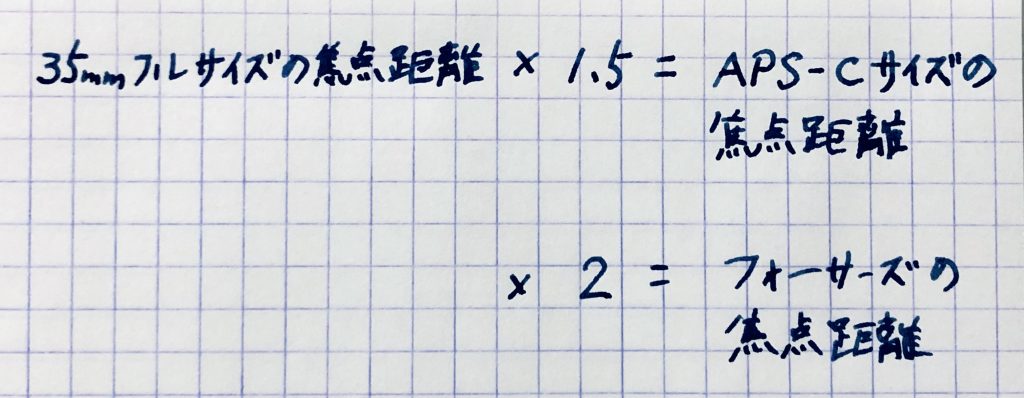 35mmフルサイズの焦点距離 × 1.5 = APS-Cサイズの
焦点距離
× 2 = フォーサーズの
焦点距離